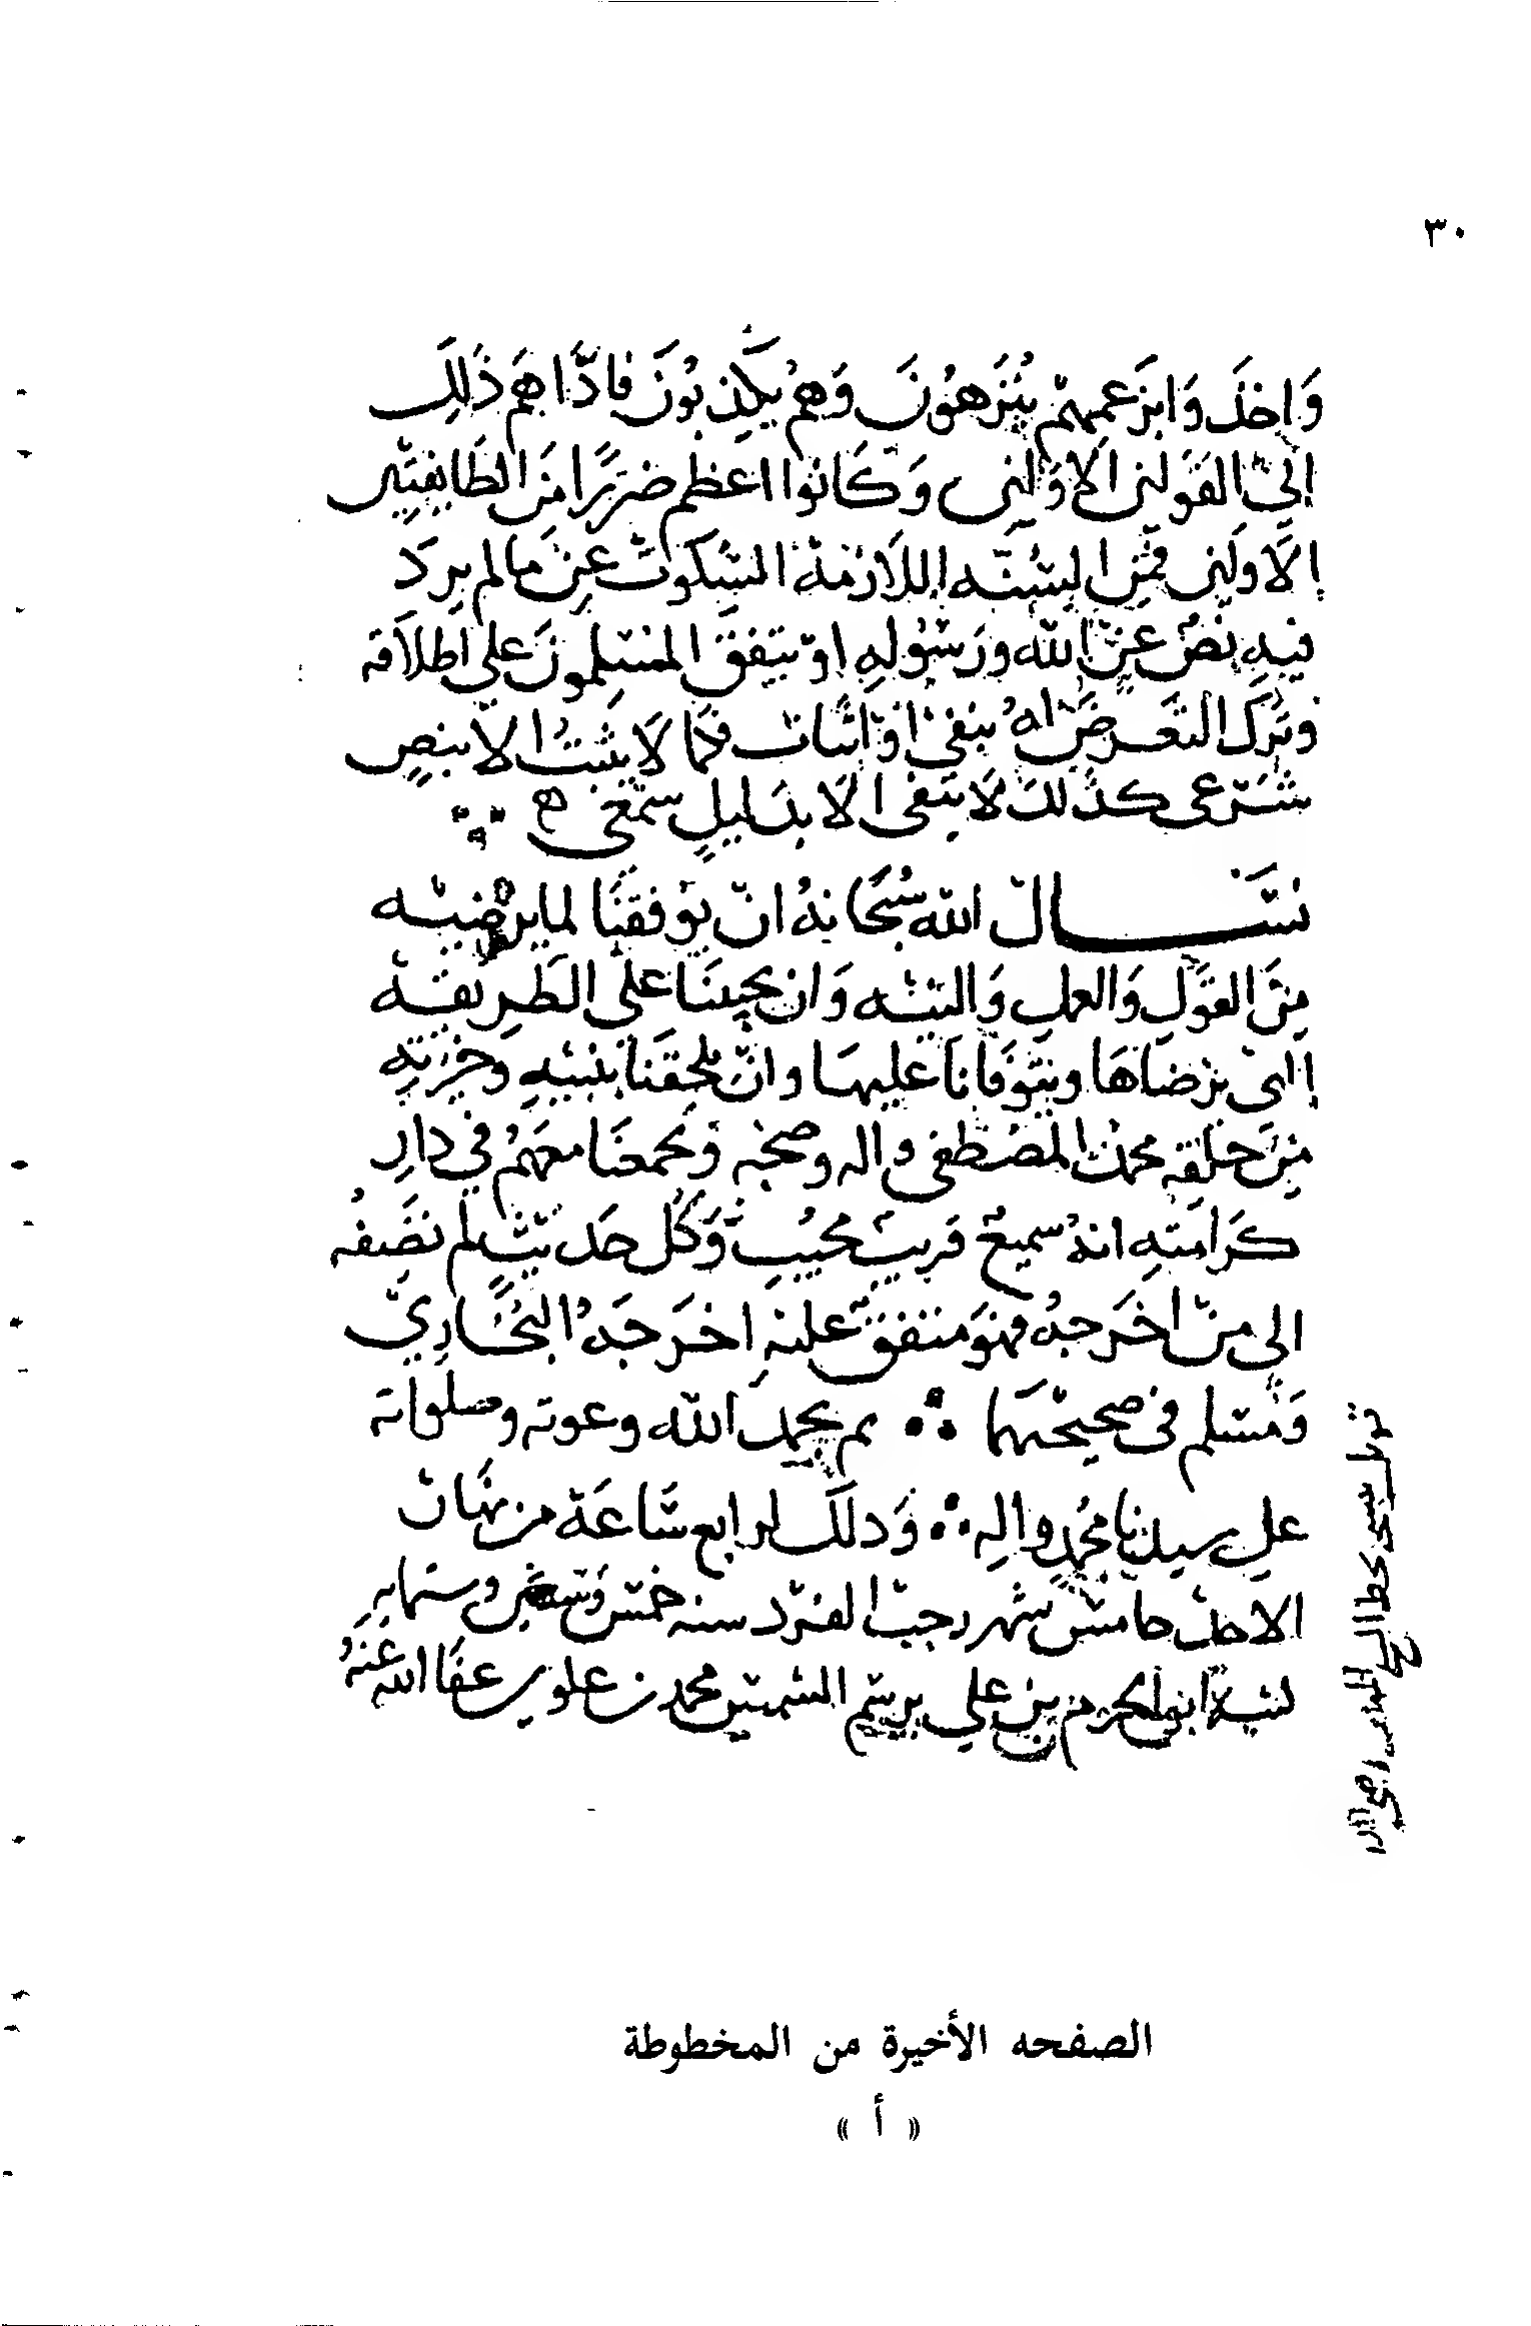 ٣٠
وَاخذَ وَابزَعمِهِم يُنَزّهُونَ وَهُم يكَذِبُونَ فادَّاهَم ذَلِكَ
اليَ القَولين الاوّلين وَكَانوا اعظم ضررًا مِنَ الطَايفتِين
الاولين فمِن السُنّه اللازمة السُكوت عِن مالم يرد
فيهِ نصٌ عَن الله ورَسُولهِ او يتفقَ المسلمونَ على اطلاقه
وتركَ التعرضَ لهُ بنفى او اثبات فكما لا يثبتُ الا بنصٍ
شرعى كذلكَ لا ينفى الا بدَليلٍ سمعى
نسال الله سُبحَانهُ ان يوَفقنَا لما يرضيه
مِنَ القوَلِ وَالعمل وَالنيه وَان يحيينَا على الطَرِيقة
التي يرضاهَا ويتوَفانا عليهَا وان يلحِقنَا بنبيهِ وخيرتِه
مِن خلقهِ محمد المصُطفى واله وصحبه وَيجمعنَا معهُم في دارِ
كَرامَتهِ انهُ سميعُ قريبٌ مجيُب وَكُل حَديثٍ لم نضَِفهُ
الى منّ اخرَجهُ فهوَ متفقٌ عليهِ اخرَجَهُ البُخَارِيّ
وَمُسلم فى صحيحَهمَا ∴ تم بحمد الله وعونه وصلواته
على سيدنا مُحمدٍ والهِ ∴ وَذلكَ لرابع سَاعَة من نهَار
الاحد خامس شهر رجب الفرد سنه خمس وسبعين وستمايهِ
علي برسم الشمس محمد بن علوى عفَا الله عَنهُ
الصفحه الأخيرة من المخطوطة
« أ »